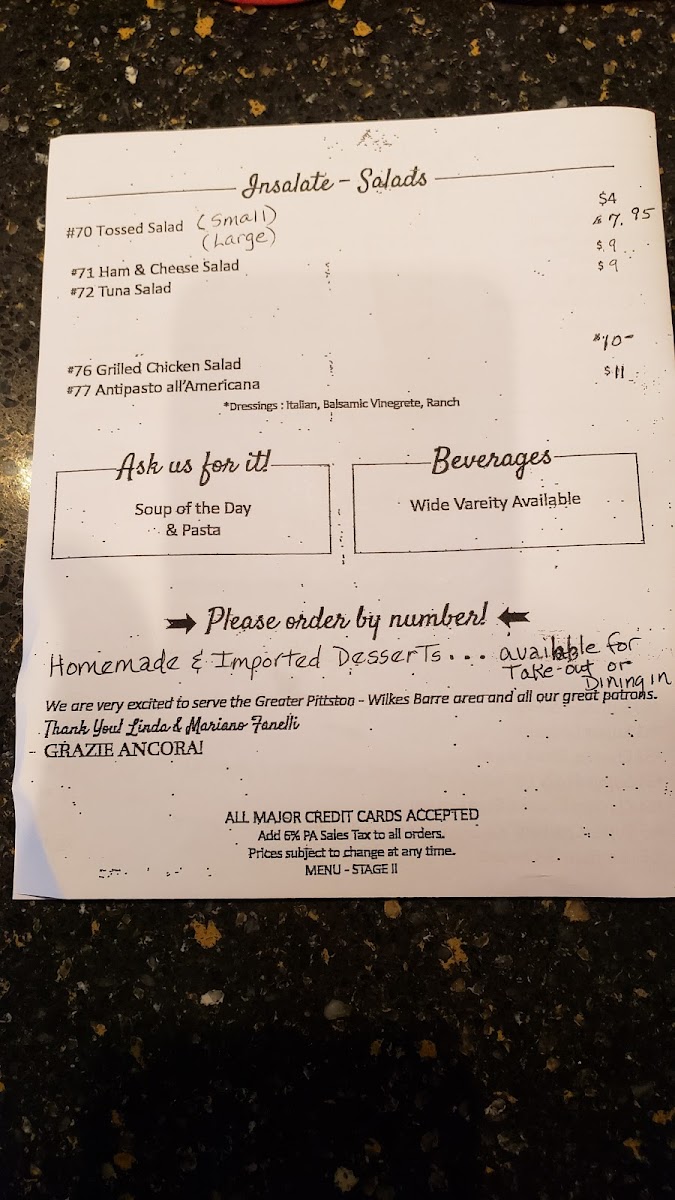 Insalate - Salads
#70 Tossed Salad (Small) $4
(Large) $7.95
#71 Ham & Cheese Salad $9
#72 Tuna Salad $9
#76 Grilled Chicken Salad $10-
#77 Antipasto all'Americana $11
*Dressings : Italian, Balsamic Vinegrete, Ranch
Ask us for it!
Soup of the Day
& Pasta
Beverages
Wide Vareity Available
Please order by number!
Homemade & Imported Desserts... available for
Take-out or
Dining in
We are very excited to serve the Greater Pittston - Wilkes Barre area and all our great patrons.
Thank You! Linda & Mariano Fanelli
- GRAZIE ANCORA!
ALL MAJOR CREDIT CARDS ACCEPTED
Add 6% PA Sales Tax to all orders.
Prices subject to change at any time.
MENU - STAGE II